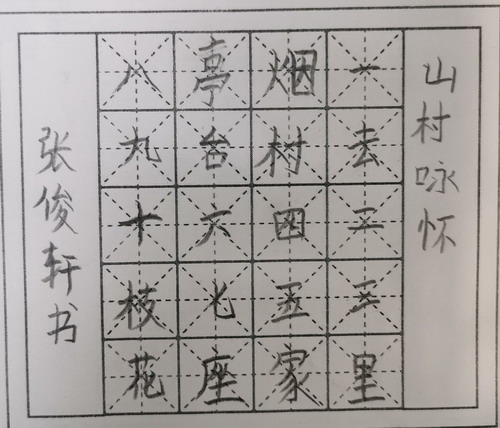 山村咏怀
一去二三里
烟村四五家
亭台六七座
八九十枝花
张俊轩书